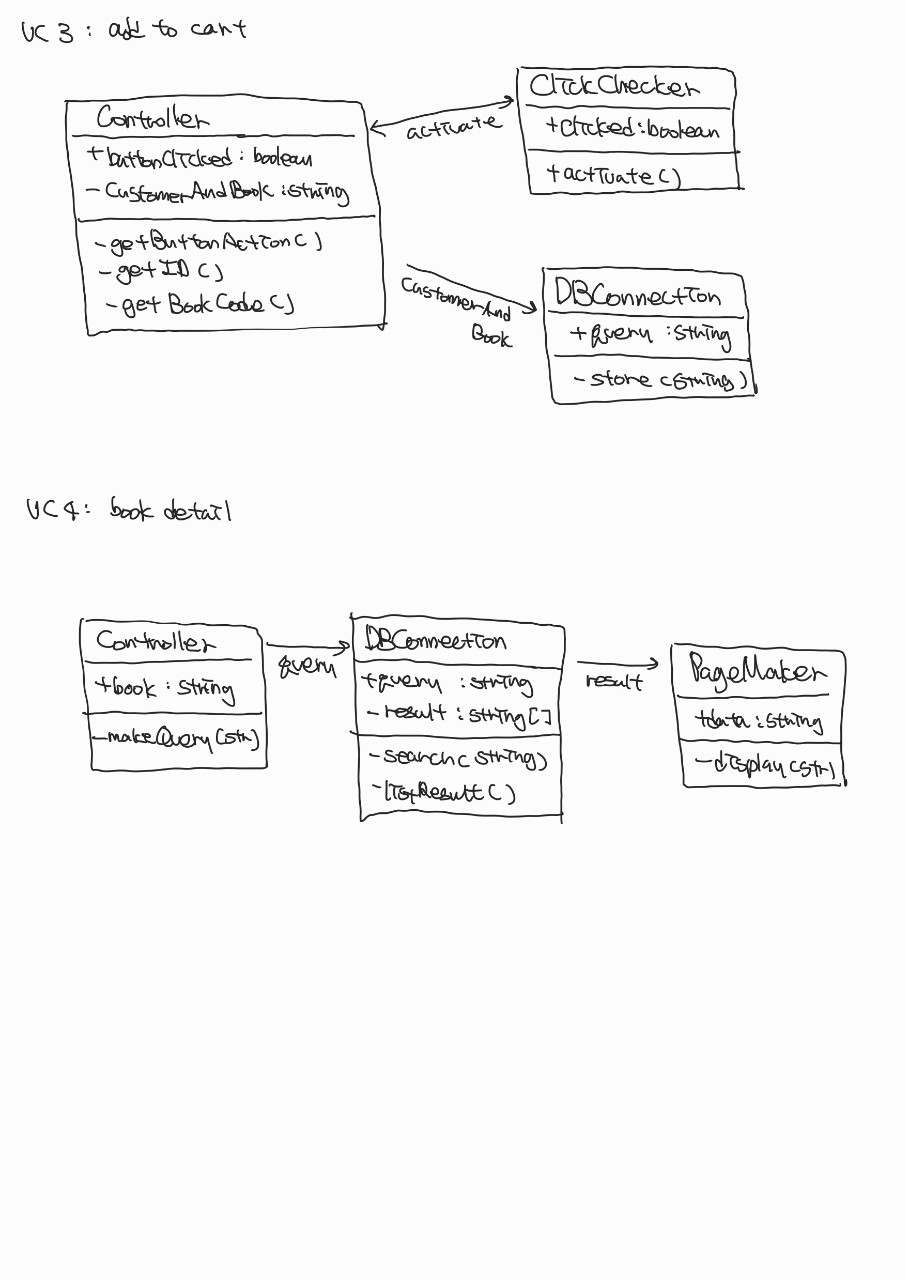 UC 3 : add to cart
Controller
+buttonClicked : boolean
-CustomerAndBook : string
-getButtonAction()
-getID()
-getBookCode()
activate
ClickChecker
+clicked : boolean
+activate()
CustomerAnd
Book
DBConnection
+query : string
-store(string)
UC 4 : book detail
Controller
+book : string
-makeQuery(str)
query
DBConnection
+query : string
-result : string[]
-search(string)
-listResult()
result
PageMaker
+data : string
-display(str)